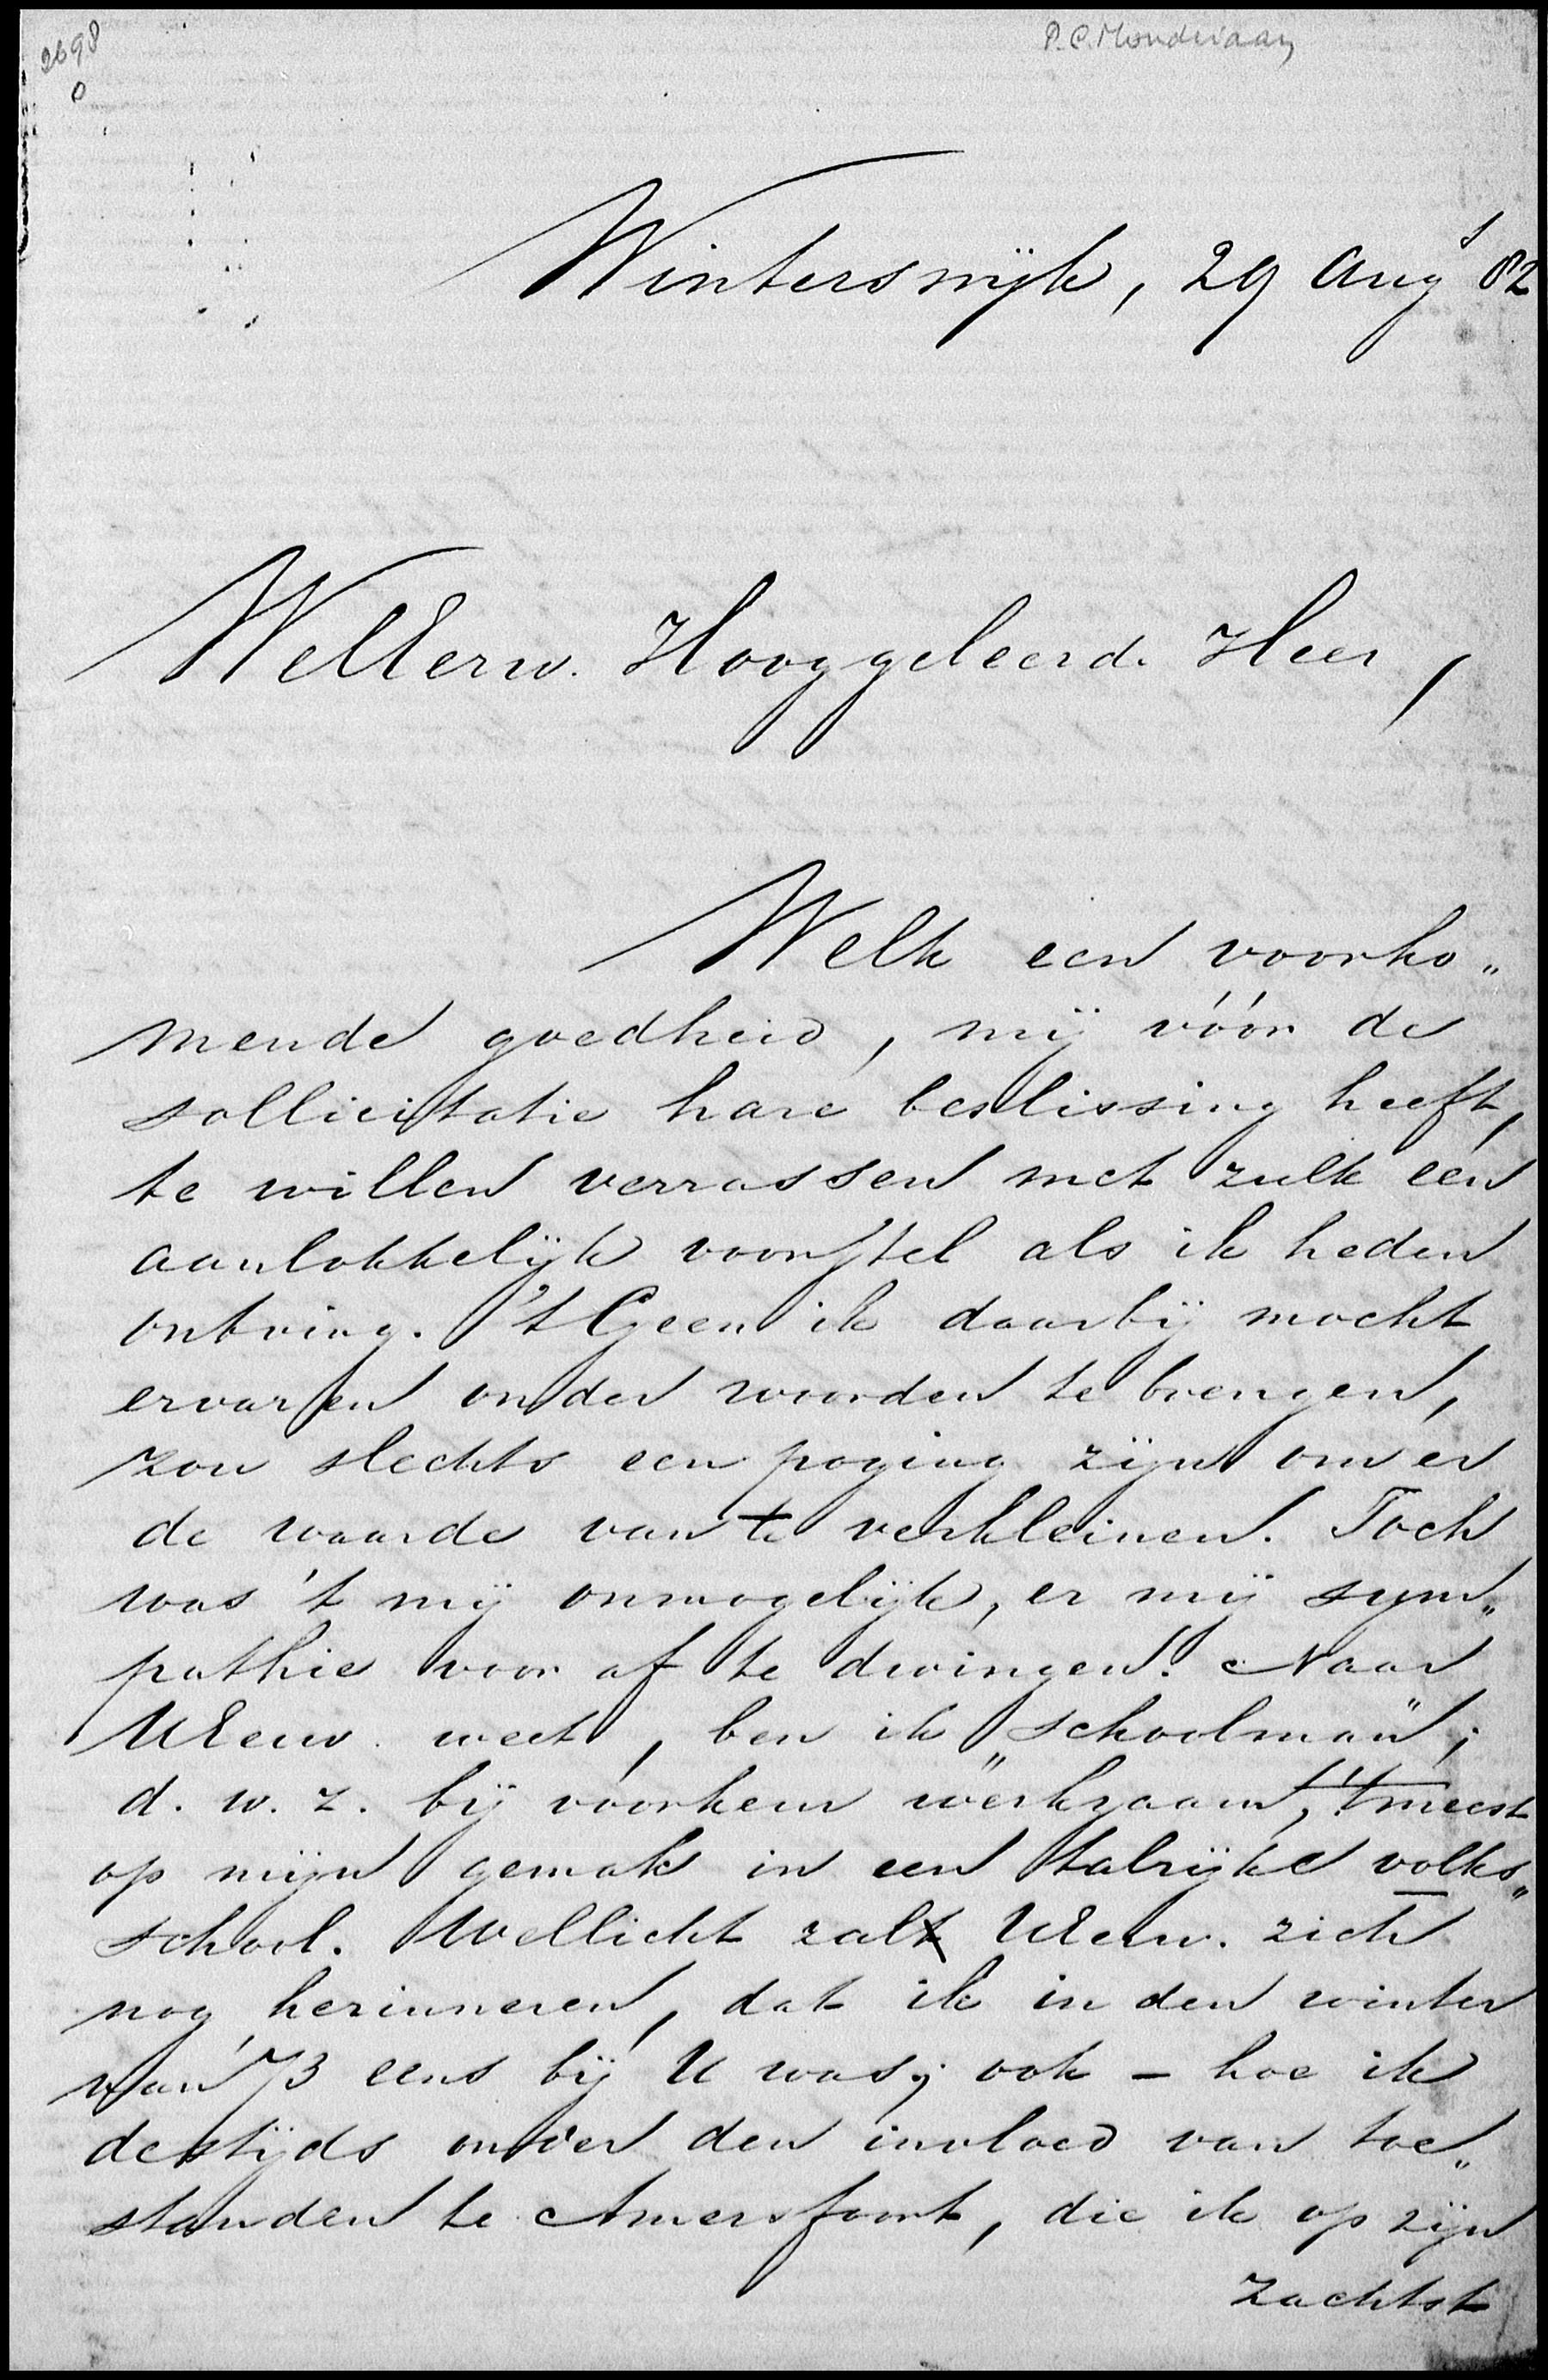 2698
0
P.C. Mondriaan
Winterswijk, 29 Augs 82
WelEerw. Hooggeleerde Heer,
Welk een voorko„
mende goedheid, mij vóór de
sollicitatie hare beslissing heeft,
te willen verrassen met zulk een
aanlokkelijk voorstel als ik heden
ontving. 't Geen ik daarbij mocht
ervaren onder woorden te brengen,
zou slechts een poging zijn om er
de waarde van te verkleinen. Toch
was 't mij onmogelijk, er mij sym„
pathie voor af te dwingen. Naar
UEerw. weet, ben ik „schoolman";
d. w. z. bij voorkeur werkzaam, 't meest
op mijn gemak in een talrijke volks„
school. Wellicht zalt UEerw. zich
nog herinneren, dat ik in den winter
van '73 eens bij U was; ook – hoe ik
destijds onder den invloed van toe„
standen te Amersfoort, die ik op zijn
zachtst